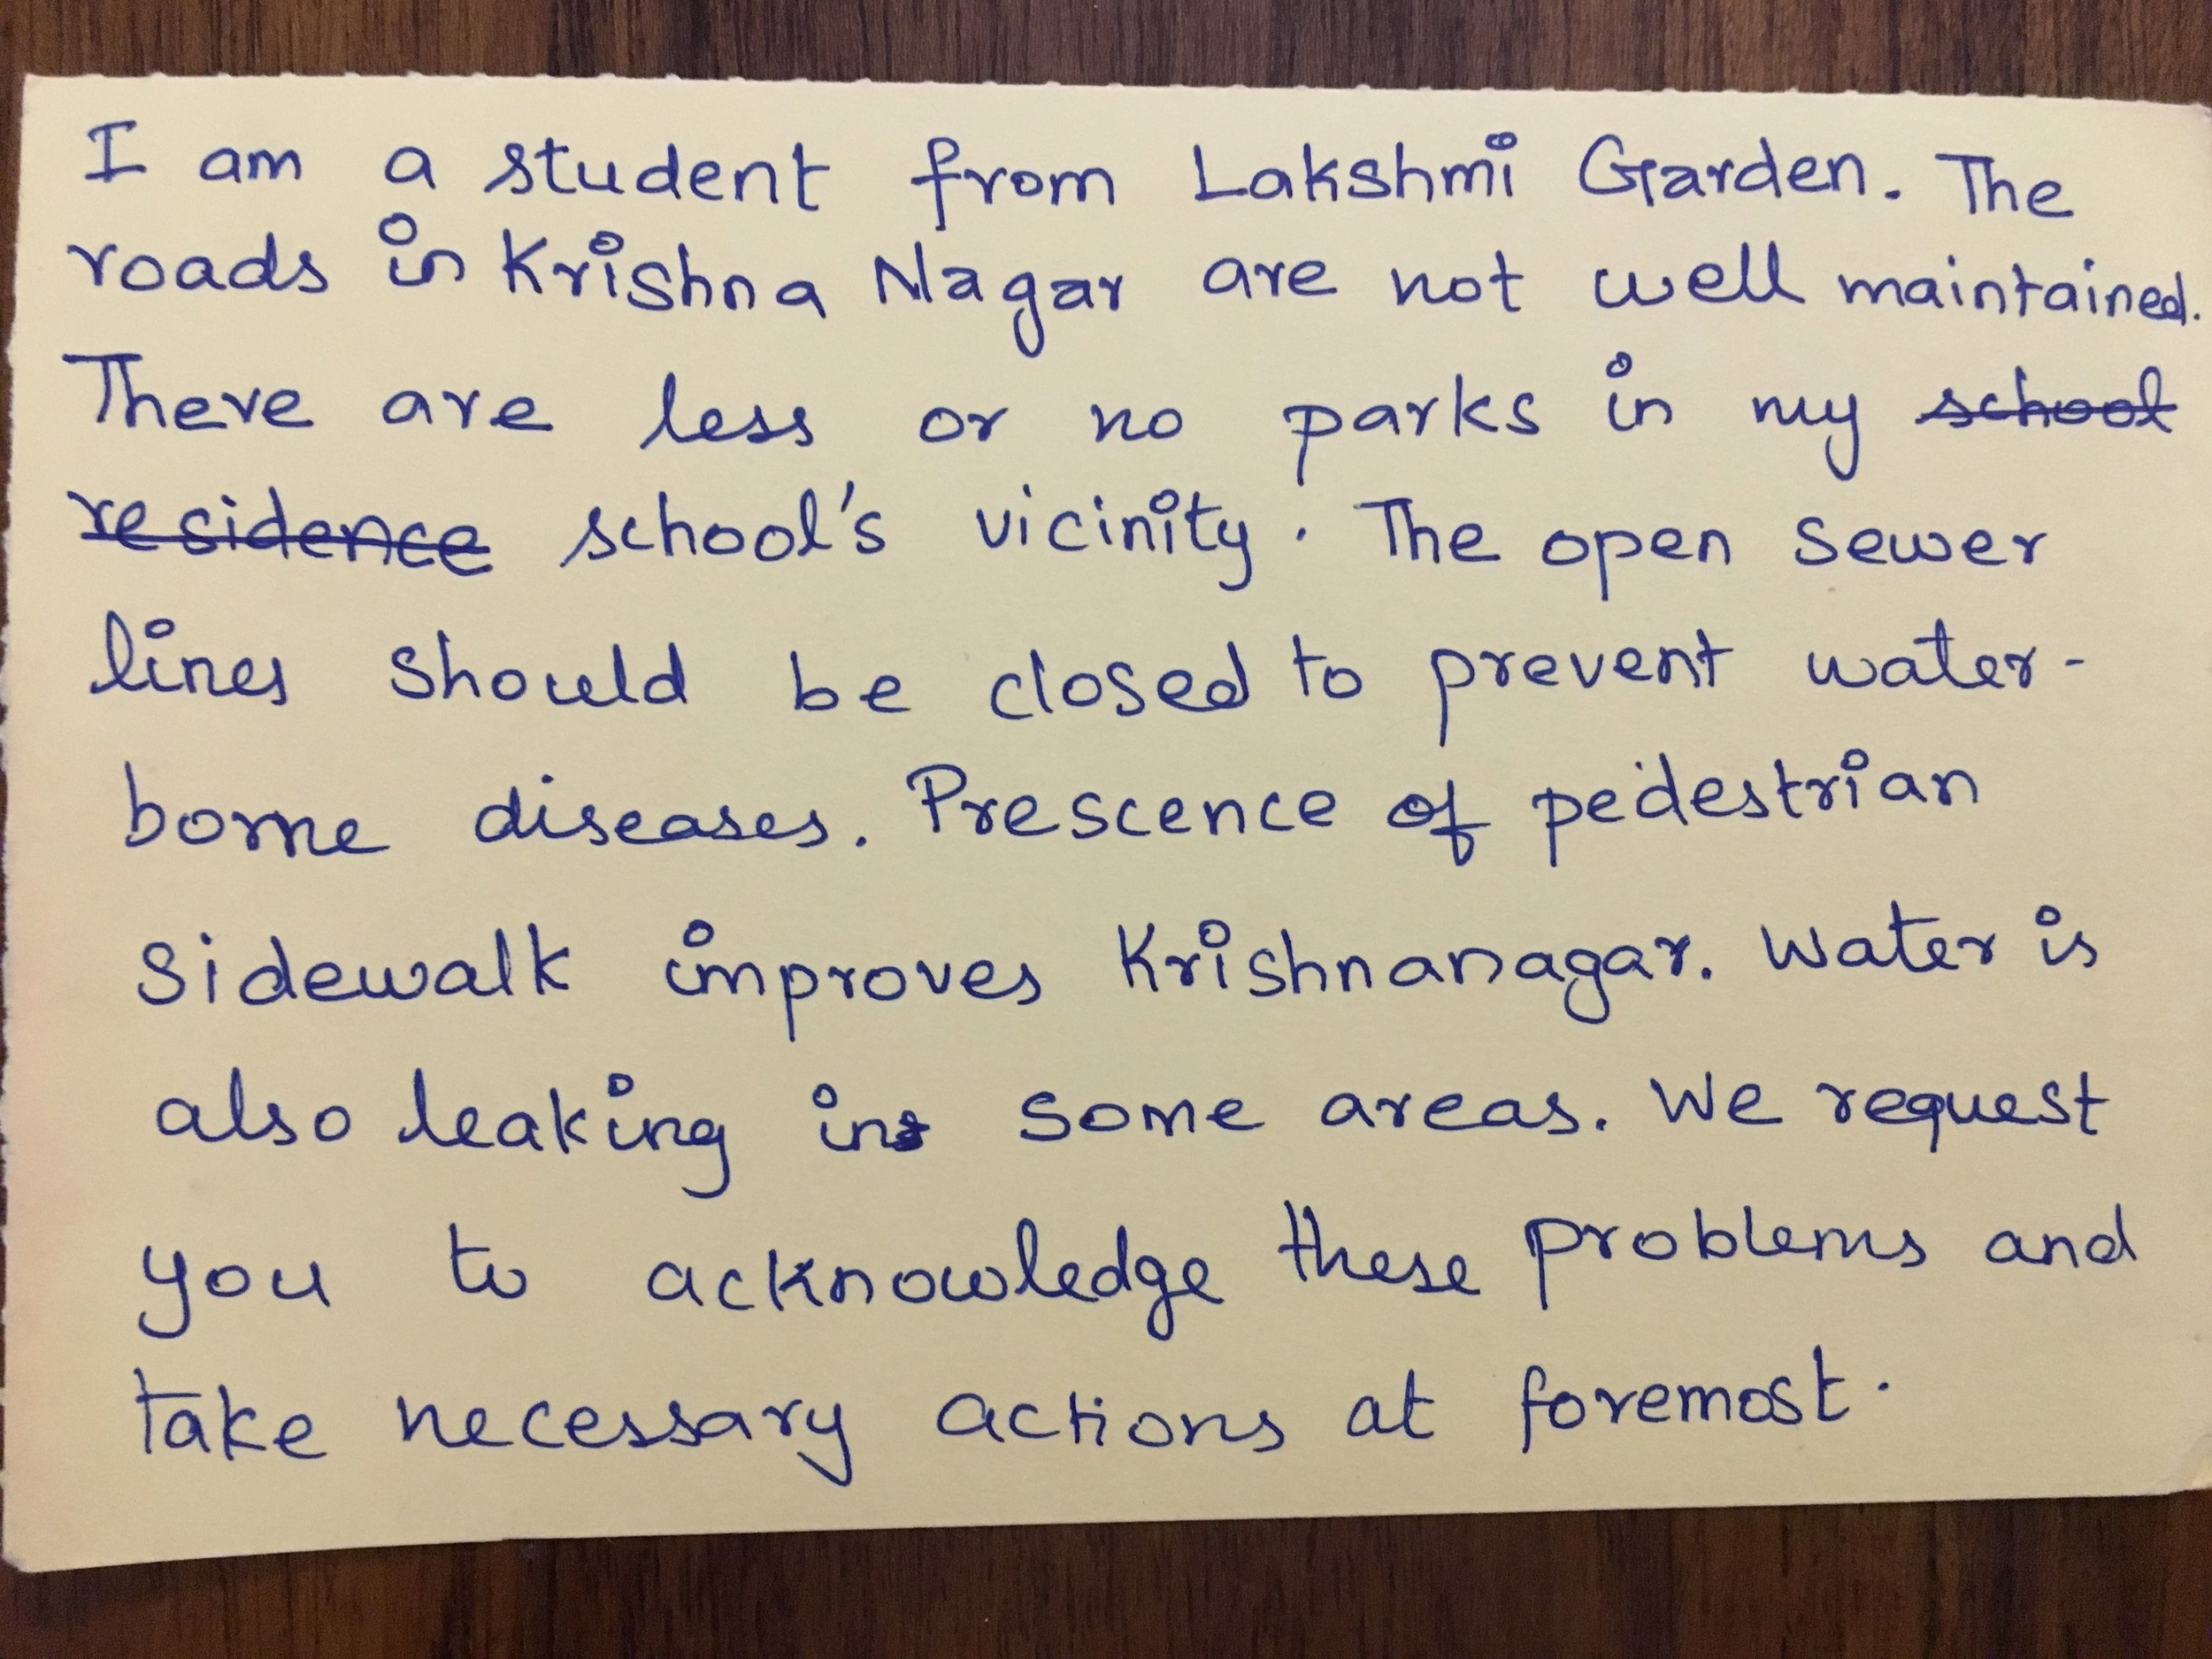 I am a student from Lakshmi Garden. The
roads in Krishna Nagar are not well maintained.
There are less or no parks in my school
residence school's vicinity. The open sewer
lines should be closed to prevent water-
borne diseases. Prescence of pedestrian
sidewalk improves Krishnanagar. Water is
also leaking in some areas. We request
you to acknowledge these problems and
take necessary actions at foremost.